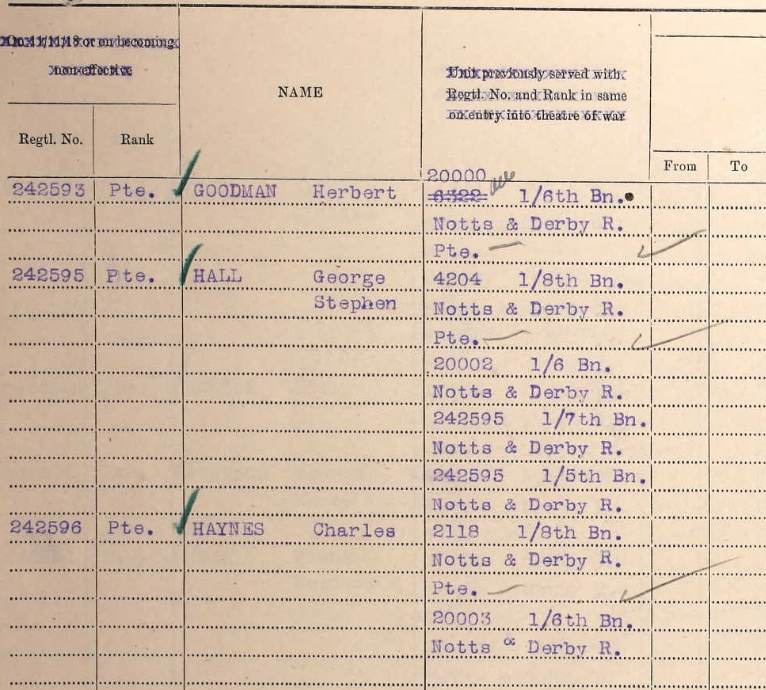 On 11/11/18 or on becoming
non-effective
NAME
Unit previously served with.
Regtl. No. and Rank in same
on entry into theatre of war
Regtl. No. Rank
From To
20000
242593 Pte. GOODMAN Herbert 6322 1/6th Bn.
Notts & Derby R.
Pte.
242595 Pte. HALL George 4204 1/8th Bn.
Stephen Notts & Derby R.
Pte.
20002 1/6 Bn.
Notts & Derby R.
242595 1/7th Bn.
Notts & Derby R.
242595 1/5th Bn.
Notts & Derby R.
242596 Pte. HAYNES Charles 2118 1/8th Bn.
Notts & Derby R.
Pte.
20003 1/6th Bn.
Notts & Derby R.